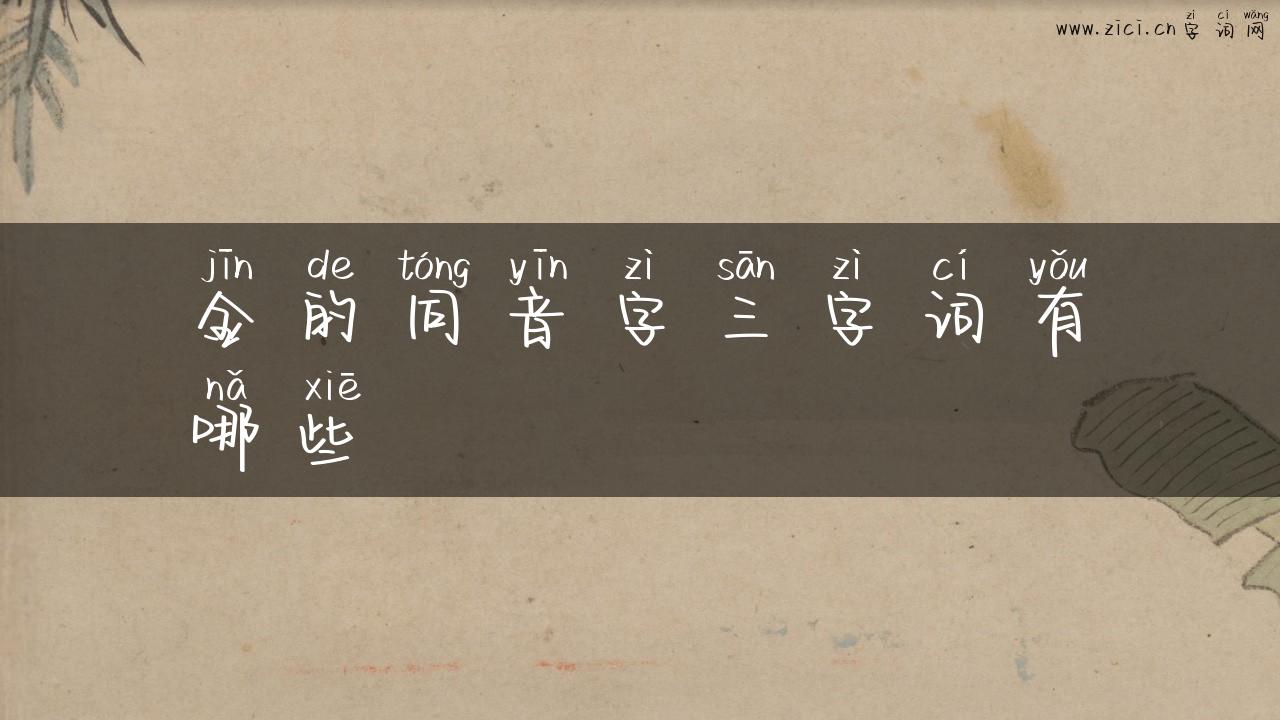 zì cí wǎng
www.zici.cn 字 词 网
jīn de tóng yīn zì sān zì cí yǒu
金 的 同 音 字 三 字 词 有
nǎ xiē
哪 些